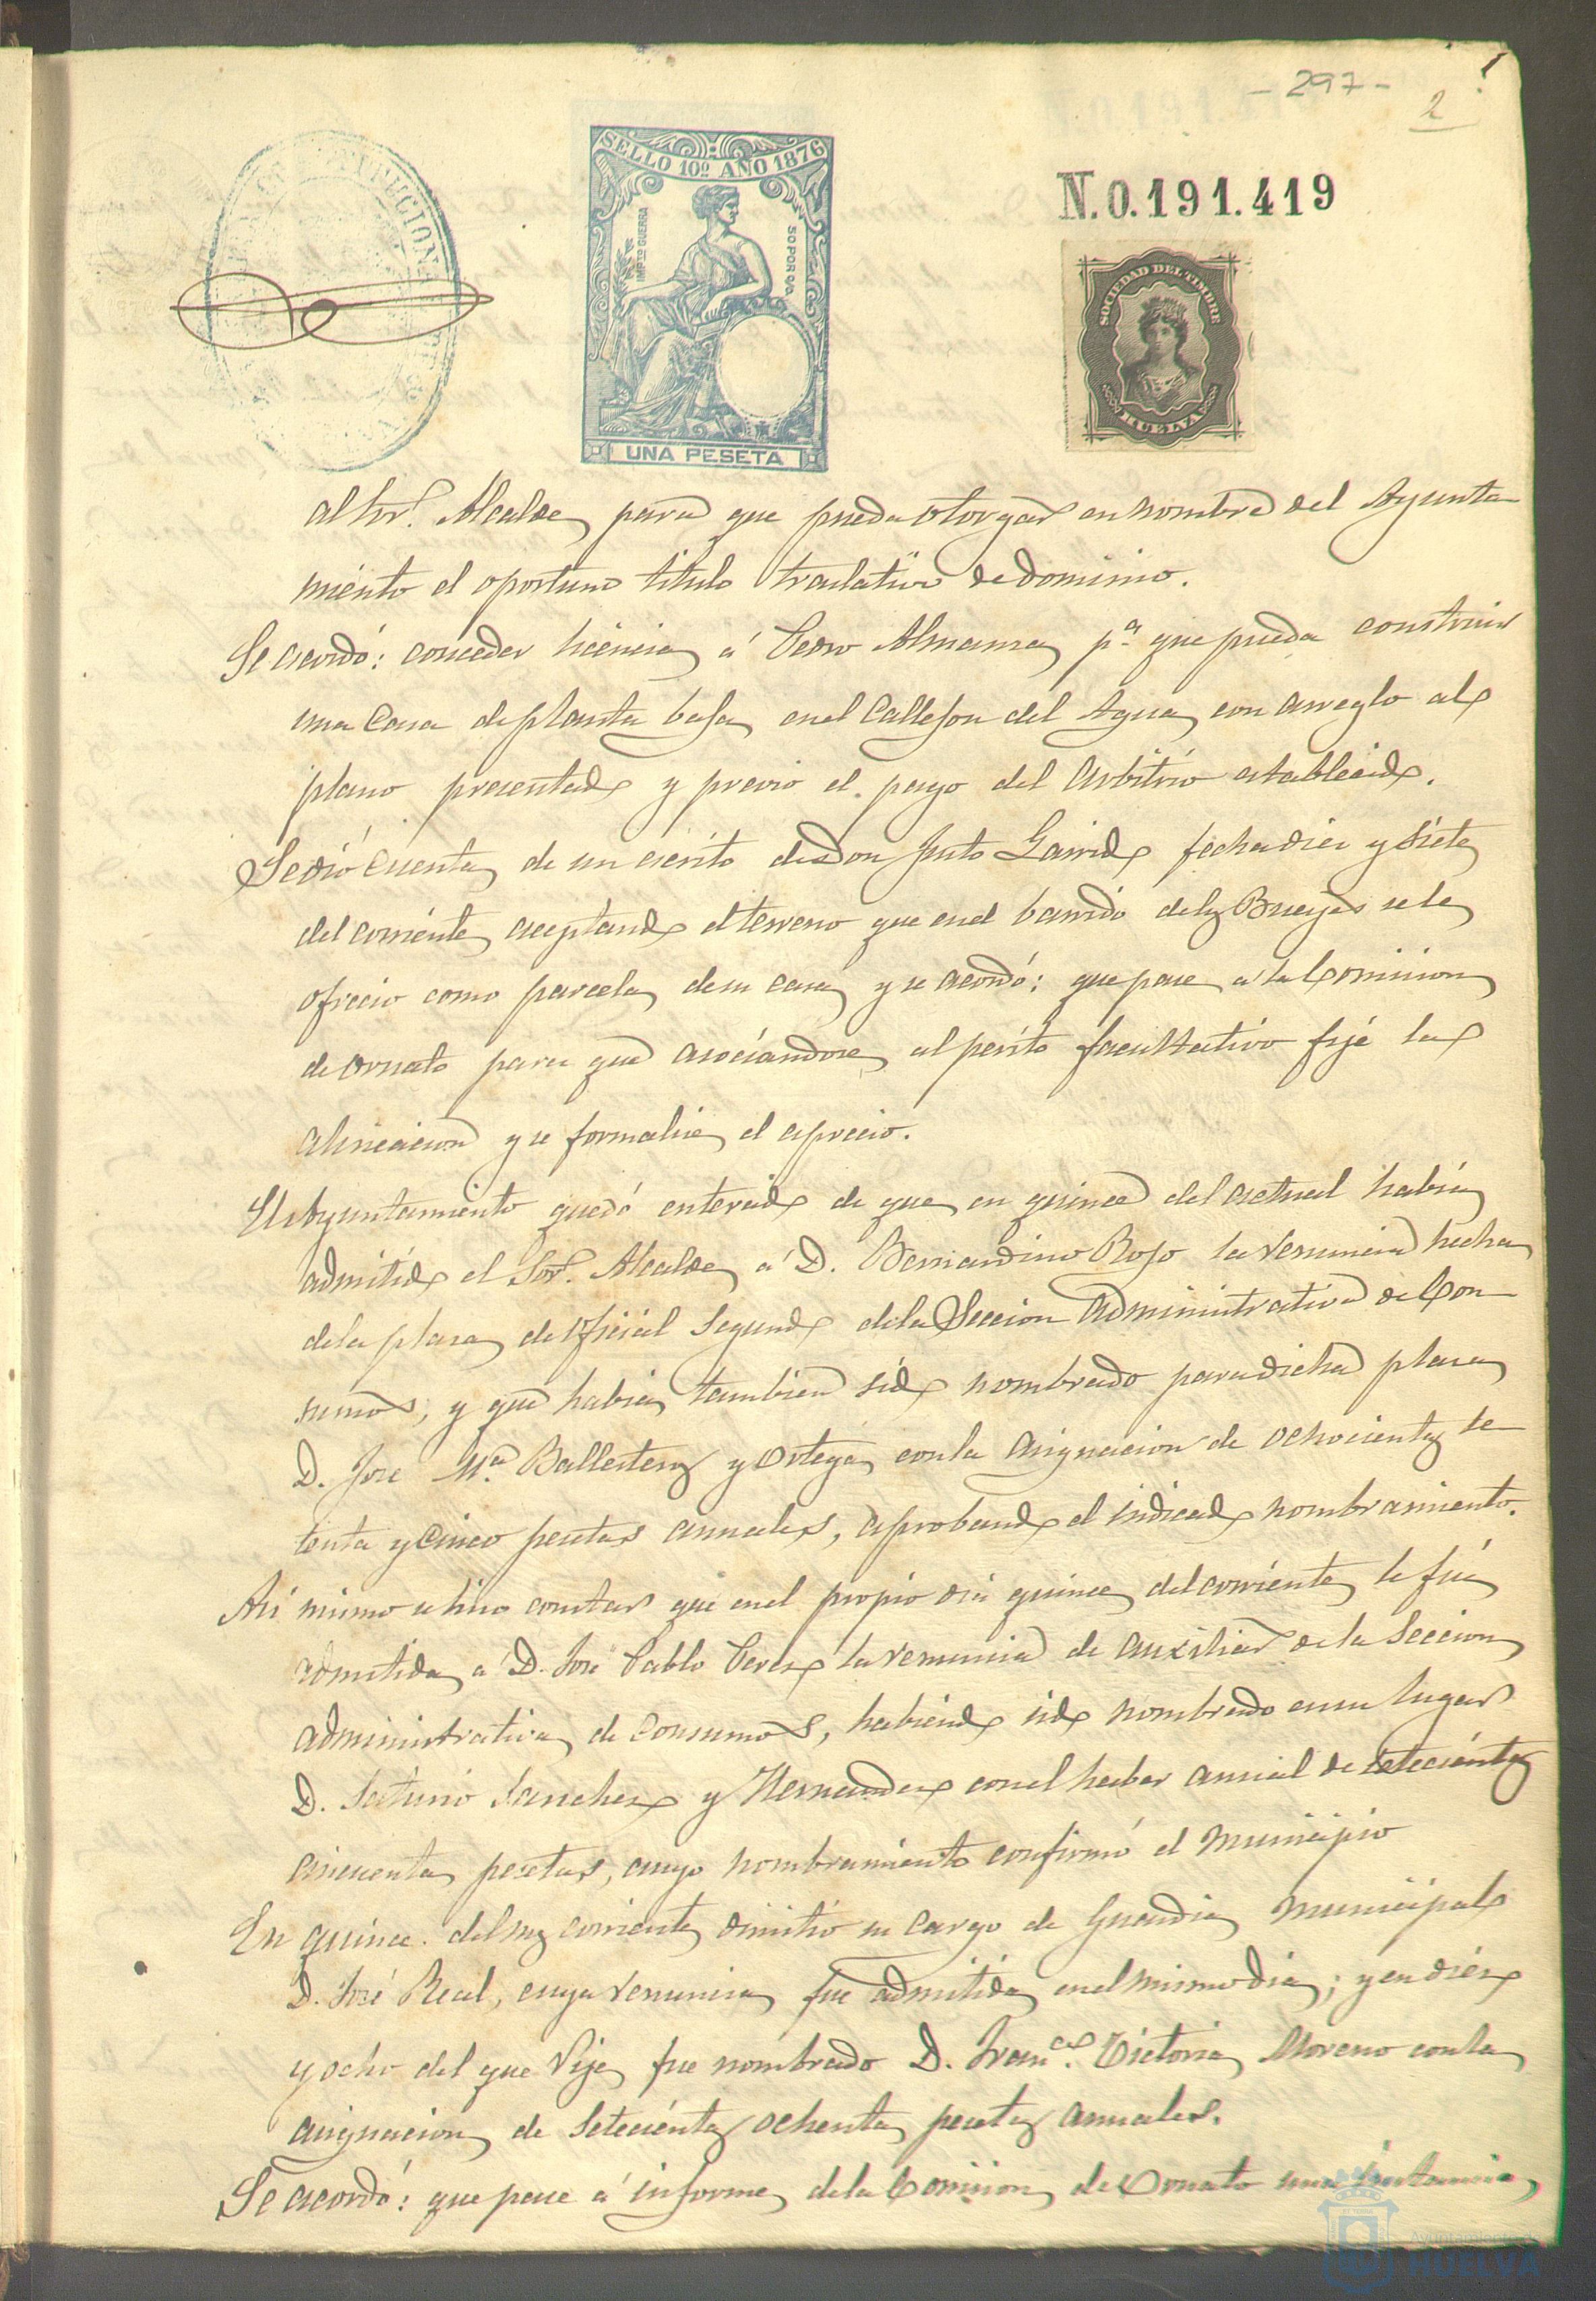 - 297 -
2
SELLO 10º AÑO 1876
IMPTO GUERRA
50 POR 0/0.
UNA PESETA
N.0.191.419
SOCIEDAD DEL TIMBRE
HUELVA
al Sor. Alcalde para que pueda otorgar en nombre del Ayunta
miento el oportuno titulo traslativo de dominio.
Se acordó: conceder licencia á Pedro Almansa pª que pueda construir
una Casa de planta baja en el Callejon del Agua con arreglo al
plano presentado y previo el pago del Arbitrio establecido.
Se dió cuenta de un escrito de Don Justo Garrido fecha diez y siete
del corriente aceptando el terreno que en el barrio de los Bueyes se le
ofrecio como parcela de su casa y se acordó: que pase a la Comision
de ornato para que asociandose al perito facultativo fije la
alineacion y se formalice el aprecio.
El Ayuntamiento quedó enterado de que en quince del actual habia
admitido el Sor. Alcalde á D. Bernardino Rojo la renuncia hecha
de la plaza de Oficial Segundo de la Seccion Administrativa de Con
sumos, y que habia tambien sido nombrado para dicha plaza
D. Jose Mª Ballesteros y Ortega con la asignacion de ochocientas se
tenta y cinco pesetas anuales, aprobando el indicado nombramiento.
Asi mismo se hizo constar que en el propio dia quince del corriente le fué
admitida a D. José Pablo Perez la renuncia de auxiliar de la Seccion
administrativa de Consumos, habiendo sido nombrado en su lugar
D. Saturio Sanchez y Hernandez con el haber anual de setecientas
cincuenta pesetas, cuyo nombramiento confirmó el Municipio
En quince del mes corriente dimitio su cargo de Guardia Municipal
D. José Real, cuya renuncia fue admitida en el mismo dia; y en diez
y ocho del que rije fue nombrado D. Francº. Victoria Moreno con la
asignacion de setecientas ochenta pesetas anuales.
Se acordó: que pase á informe de la Comision de Ornato una instancia
Ayuntamiento de
HUELVA